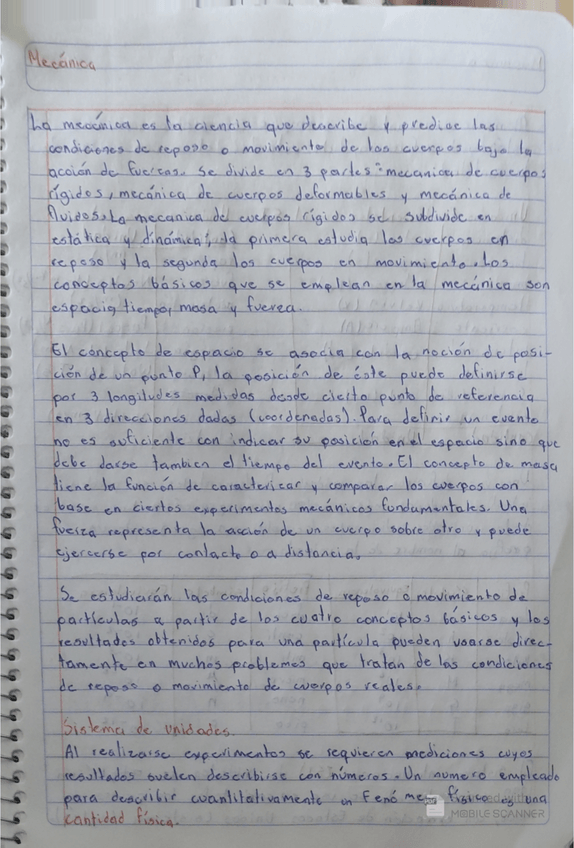 Mecánica
La mecánica es la ciencia que describe y predice las
condiciones de reposo o movimiento de los cuerpos bajo la
acción de fuerzas. Se divide en 3 partes: mecanica de cuerpos
rígidos, mecánica de cuerpos deformables y mecánica de
fluidos. La mecanica de cuerpos rígidos se subdivide en
estática y dinámica, la primera estudia los cuerpos en
reposo y la segunda los cuerpos en movimiento. Los
conceptos básicos que se emplean en la mecánica son
espacio, tiempo, masa y fuerza.
El concepto de espacio se asocia con la noción de posi-
ción de un punto P, la posición de éste puede definirse
por 3 longitudes medidas desde cierto punto de referencia
en 3 direcciones dadas (coordenadas). Para definir un evento
no es suficiente con indicar su posición en el espacio sino que
debe darse tambien el tiempo del evento. El concepto de masa
tiene la función de caracterizar y comparar los cuerpos con
base en ciertos experimentos mecánicos fundamentales. Una
fuerza representa la acción de un cuerpo sobre otro y puede
ejercerse por contacto o a distancia.
Se estudiarán las condiciones de reposo o movimiento de
partículas a partir de los cuatro conceptos básicos y los
resultados obtenidos para una partícula pueden usarse direc-
tamente en muchos problemas que tratan de las condiciones
de reposo o movimiento de cuerpos reales.
Sistema de unidades.
Al realizarse experimentos se requieren mediciones cuyos
resultados suelen describirse con números. Un numero empleado
para describir cuantitativamente un Fenómeno físico es una
cantidad física.
MOBILE SCANNER